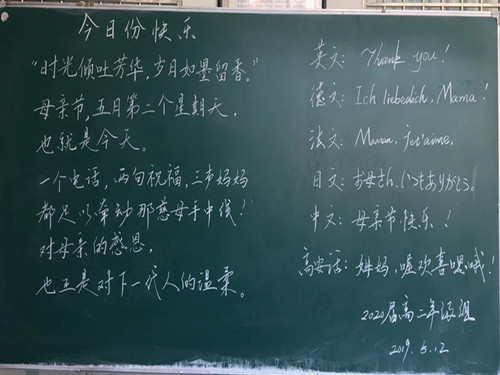 今日份快乐
“时光倾吐芳华，岁月如墨留香。”
母亲节，五月第二个星期天，
也就是今天。
一个电话，两句祝福，三声妈妈
都足以牵动那慈母手中线！
对母亲的感恩，
也正是对下一代人的温柔。
英文：Thank you！
德文：Ich liebe dich, Mama！
法文：Maman, je t'aime.
日文：お母さん、いつもありがとう。
中文：母亲节快乐！
高安话：姆妈，喔欢喜嗯哦！
2020届高二年级组
2019.5.12